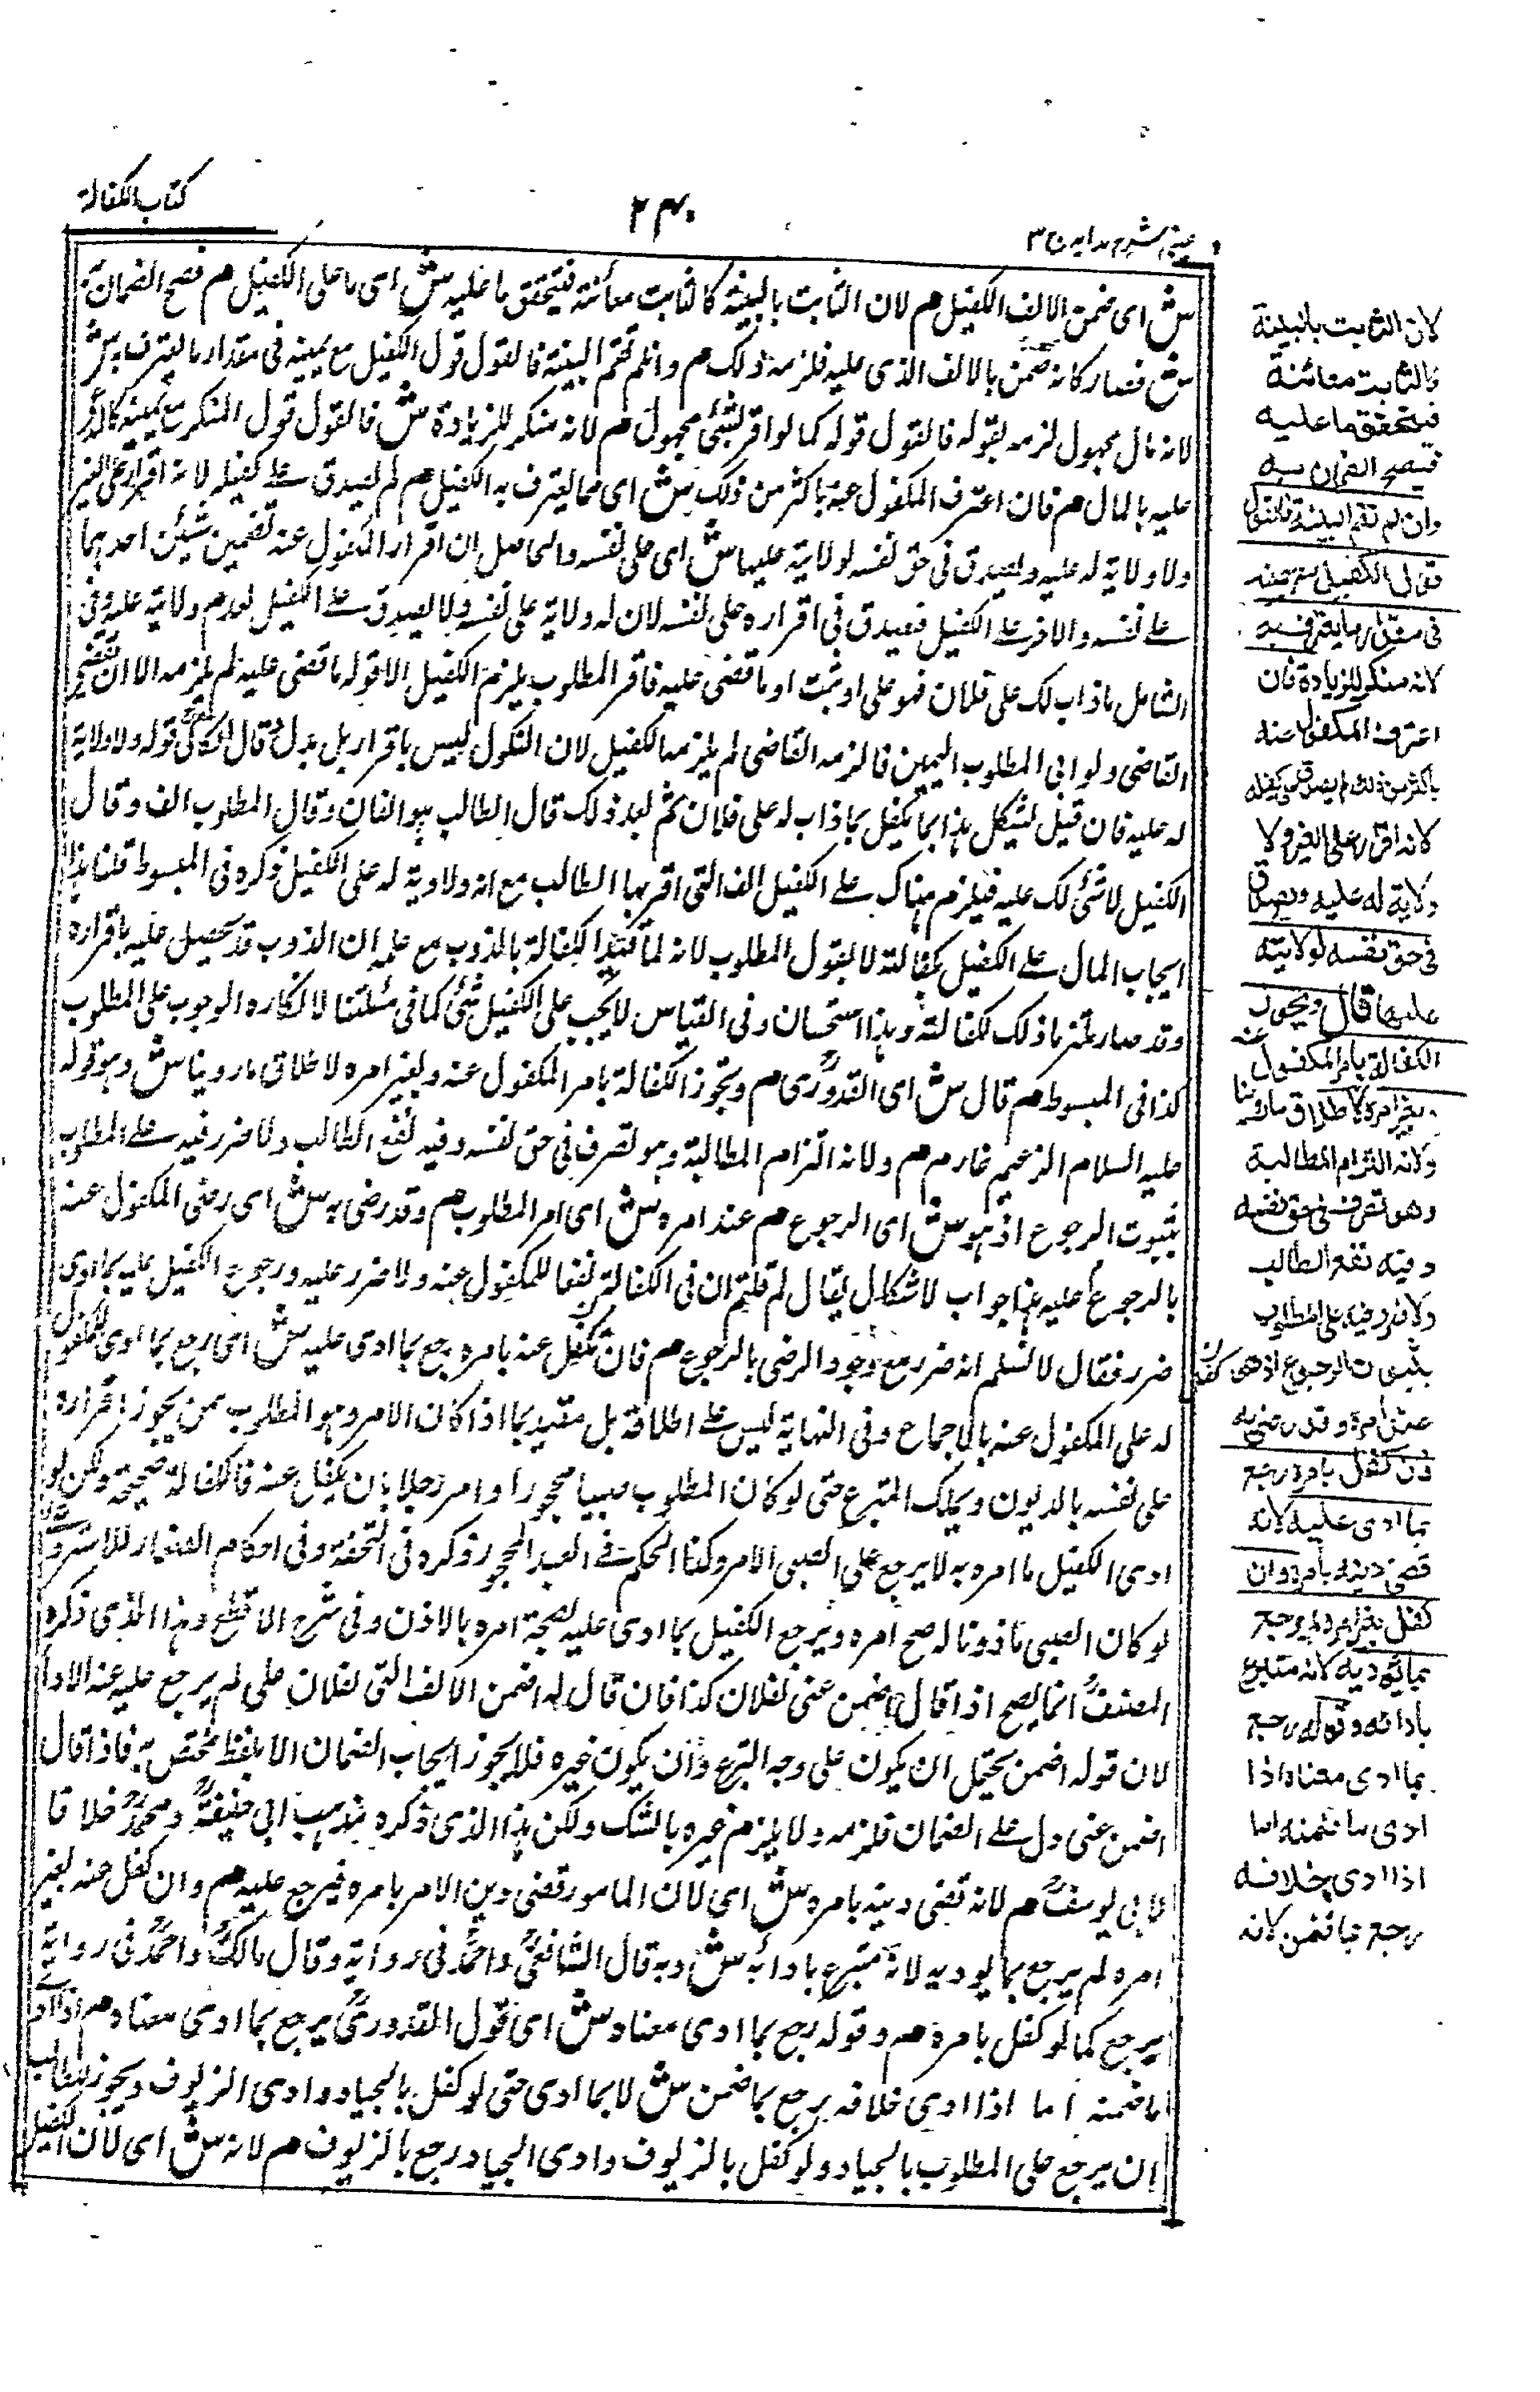 كتاب الكفالة
٢٤٠
عينى شرح هدايه ج ٣
ش اى ضمن الالف الكفيل م لان الثابت بالبينة كالثابت معائنة فيتحقق ما عليه ش اى ما على الكفيل م فصح الضمان به
ش فصار كانه ضمن بالالف الذى عليه فلزمه ذلك م وان لم تقم البينة فالقول قول الكفيل مع يمينه فى مقدار ما يعترف به ش
لانه مال مجهول لزمه بقوله فالقول قوله كما لو اقر بشئ مجهول م لانه منكر للزيادة ش فالقول قول المنكر مع يمينه
عليه بالمال م فان اعترف المكفول عنه باكثر من ذلك ش اى مما يعترف به الكفيل م لم يصدق على كفيله لانه اقرار على الغير
ولا ولاية له عليه ويصدق فى حق نفسه لولايته عليها ش اى على نفسه والحاصل ان اقرار المكفول عنه تضمين شيئين احدهما
على نفسه والاخر على الكفيل فيصدق فى اقراره على نفسه لان له ولاية على نفسه ولا يصدق على الكفيل لعدم ولاية عليه وفى
الشامل ما ذاب لك على فلان فهو على او ثبت او ما قضى عليه فاقر المطلوب يلزم الكفيل الا قوله ما قضى عليه لم يلزمه الا ان يقضى
القاضى ولو ابى المطلوب اليمين فالزمه القاضى لم يلزمه الكفيل لان النكول ليس باقرار بل بذل قال قوله ولا ولاية
له عليه فان قيل يشكل هذا بما يكفل بما ذاب له على فلان ثم بعد ذلك قال الطالب هو الفان وقال المطلوب الف وقال
الكفيل لا شئ لك عليه فيلزم هناك على الكفيل الف التى اقر بها الطالب مع انه ولا ولاية له على الكفيل ذكره فى المبسوط قلنا هذا
ايجاب المال على الكفيل بكفالته لا بقول المطلوب لانه لما قيد الكفالة بالذوب مع علمه ان الذوب قد يحصل عليه باقراره
وقد صار ملتزما ذلك بكفالته وهذا استحسان وفى القياس لا يجب على الكفيل شئ كما فى مسئلتنا لانكاره الوجوب على المطلوب
كذا فى المبسوط م قال ش اى القدورى م وتجوز الكفالة بامر المكفول عنه وبغير امره لاطلاق ما روينا ش وهو قوله
عليه السلام الزعيم غارم م ولانه التزام المطالبة وهو تصرف فى حق نفسه وفيه نفع الطالب ولا ضرر فيه على المطلوب
بثبوت الرجوع اذ هو ش اى الرجوع م عند امره ش اى امر المطلوب م وقد رضى به ش اى رضى المكفول عنه
بالرجوع عليه هذا جواب لاشكال يقال لم قلتم ان فى الكفالة نفعا للمكفول عنه ولا ضرر عليه ورجوع الكفيل عليه بما ادى
ضرر فقال لا نسلم انه ضرر مع وجود الرضى بالرجوع م فان كفل عنه بامره رجع بما ادى عليه ش اى رجع بما ادى للمكفول
له على المكفول عنه بالاجماع وفى النهاية ليس على اطلاقه بل مقيد بما اذا كان الامر وهو المطلوب ممن يجوز اقراره
على نفسه بالديون ويملك التبرع حتى لو كان المطلوب صبيا محجورا وامر رجلا بان يكفل عنه فالكفالة صحيحة ولكن لو
ادى الكفيل ما امره به لا يرجع على الصبى الامر وكذا الحكم فى العبد المحجور ذكره فى التحفة وفى احكام الصغار للاستروشنى
لو كان الصبى ماذونا له صح امره ويرجع الكفيل بما ادى عليه لصحة امره بالاذن وفى شرح الاقطع وهذا الذى ذكره
المصنف انما يصح اذا قال اضمن عنى لفلان كذا فان قال له اضمن الالف التى لفلان على لم يرجع عليه عند الاداء
لان قوله اضمن يحتمل ان يكون على وجه التبرع وان يكون غيره فلا يجوز ايجاب الضمان الا بلفظ مختص به فاذا قال
اضمن عنى دل على الضمان فلزمه ولا يلزم غيره بالشك ولكن هذا الذى ذكره مذهب ابى حنيفة ومحمد خلافا
لابى يوسف م لانه قضى دينه بامره ش اى لان المامور قضى دين الامر بامره فيرجع عليه م وان كفل عنه بغير
امره لم يرجع بما يوديه لانه متبرع بادائه ش وبه قال الشافعى واحمد فى رواية وقال مالك واحمد فى رواية
يرجع كما لو كفل بامره م وقوله رجع بما ادى معناه ش اى قول القدورى يرجع بما ادى معناه م اذا ادى
ما ضمنه اما اذا ادى خلافه يرجع بما ضمن ش لا بما ادى حتى لو كفل بالجياد وادى الزيوف ويجوز للطالب
ان يرجع على المطلوب بالجياد ولو كفل بالزيوف وادى الجياد رجع بالزيوف م لانه ش اى لان الكفيل
لان الثابت بالبينة
كالثابت معائنة
فيتحقق ما عليه
فيصح الضمان به
وان لم تقم البينة فالقول
قول الكفيل مع يمينه
فى مقدار ما يعترف به
لانه منكر للزيادة فان
اعترف المكفول عنه
باكثر من ذلك لم يصدق على كفيله
لانه اقرار على الغير ولا
ولاية له عليه ويصدق
فى حق نفسه لولايته
عليها قال ويجوز
الكفالة بامر المكفول عنه
وبغير امره لاطلاق ما روينا
ولانه التزام المطالبة
وهو تصرف فى حق نفسه
وفيه نفع الطالب
ولا ضرر فيه على المطلوب
بثبوت الرجوع اذ هو
عند امره وقد رضى به
فان كفل بامره رجع
بما ادى عليه لانه
قضى دينه بامره وان
كفل بغير امره لم يرجع
بما يوديه لانه متبرع
بادائه وقوله رجع
بما ادى معناه اذا
ادى ما ضمنه اما
اذا ادى خلافه
رجع بما ضمن لانه